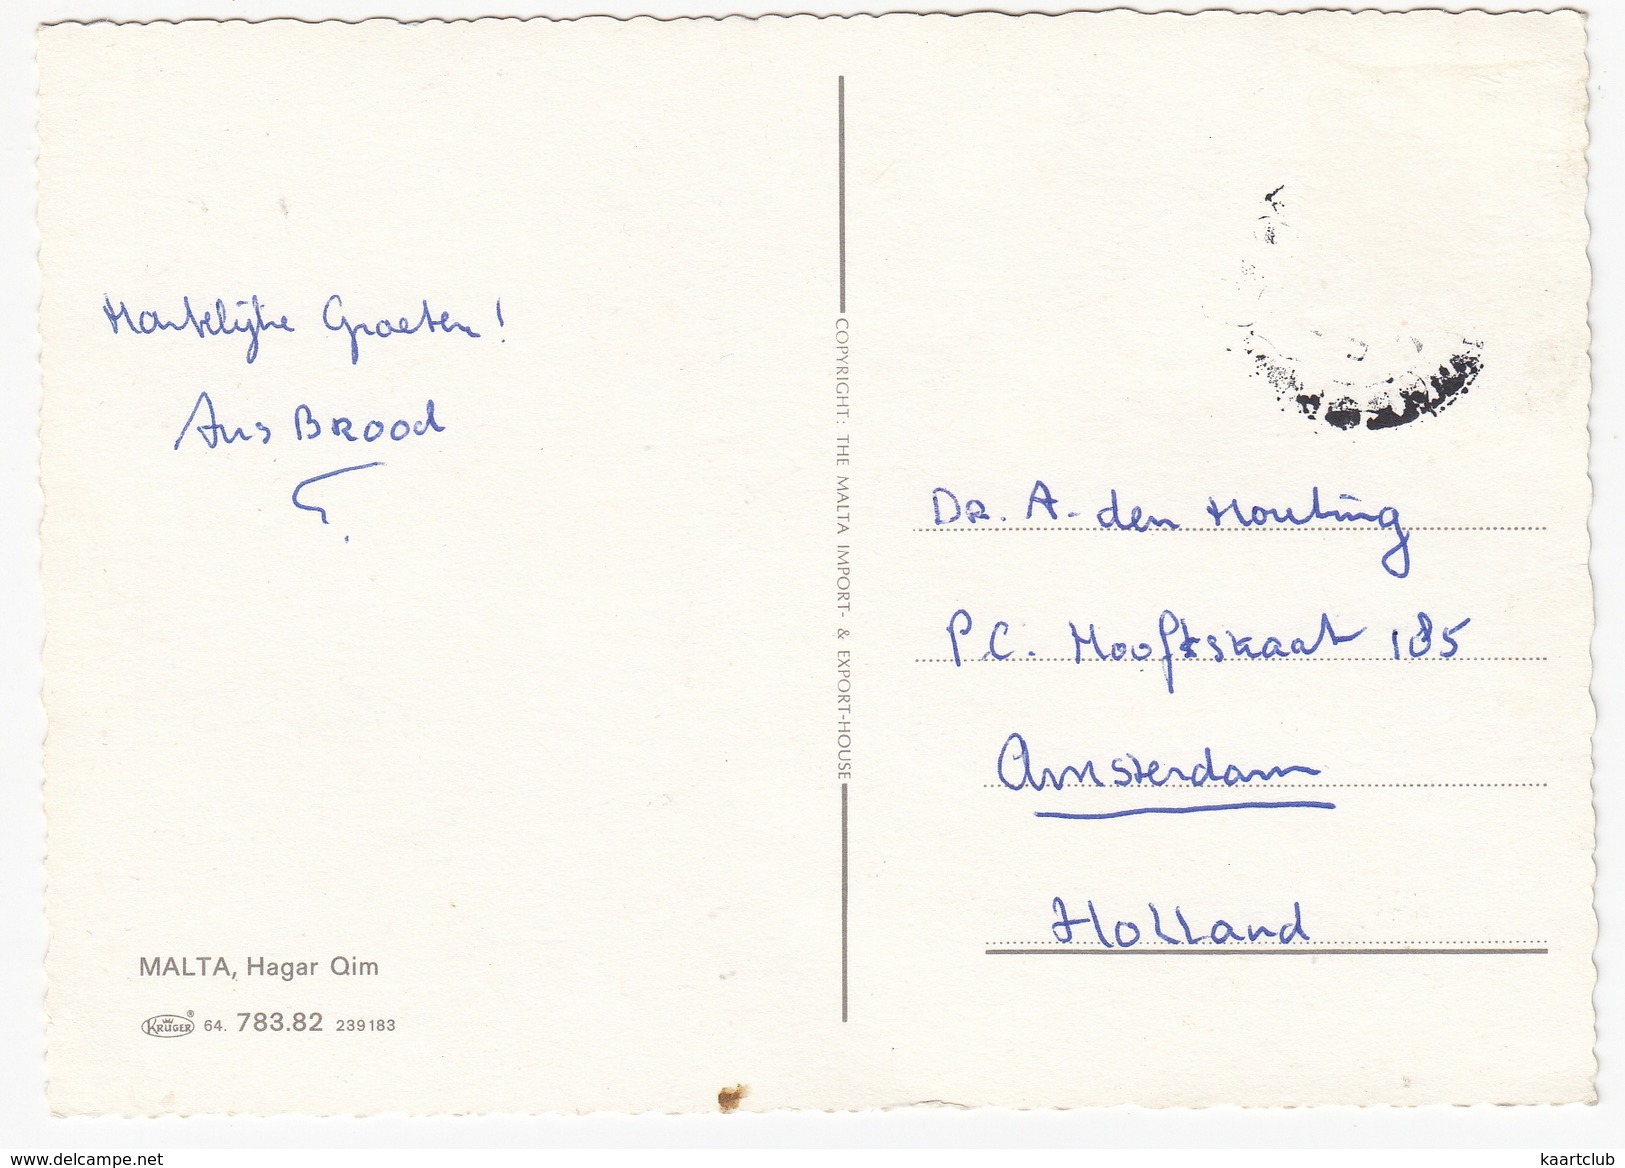 Hartelijke Groeten!
Ans Brood
MALTA, Hagar Qim
KRÜGER ® 64. 783.82 239183
COPYRIGHT: THE MALTA IMPORT- & EXPORT-HOUSE
DR. A. den Houting
P.C. Hooftstraat 185
Amsterdam
Holland
www.delcampe.net
kaartclub